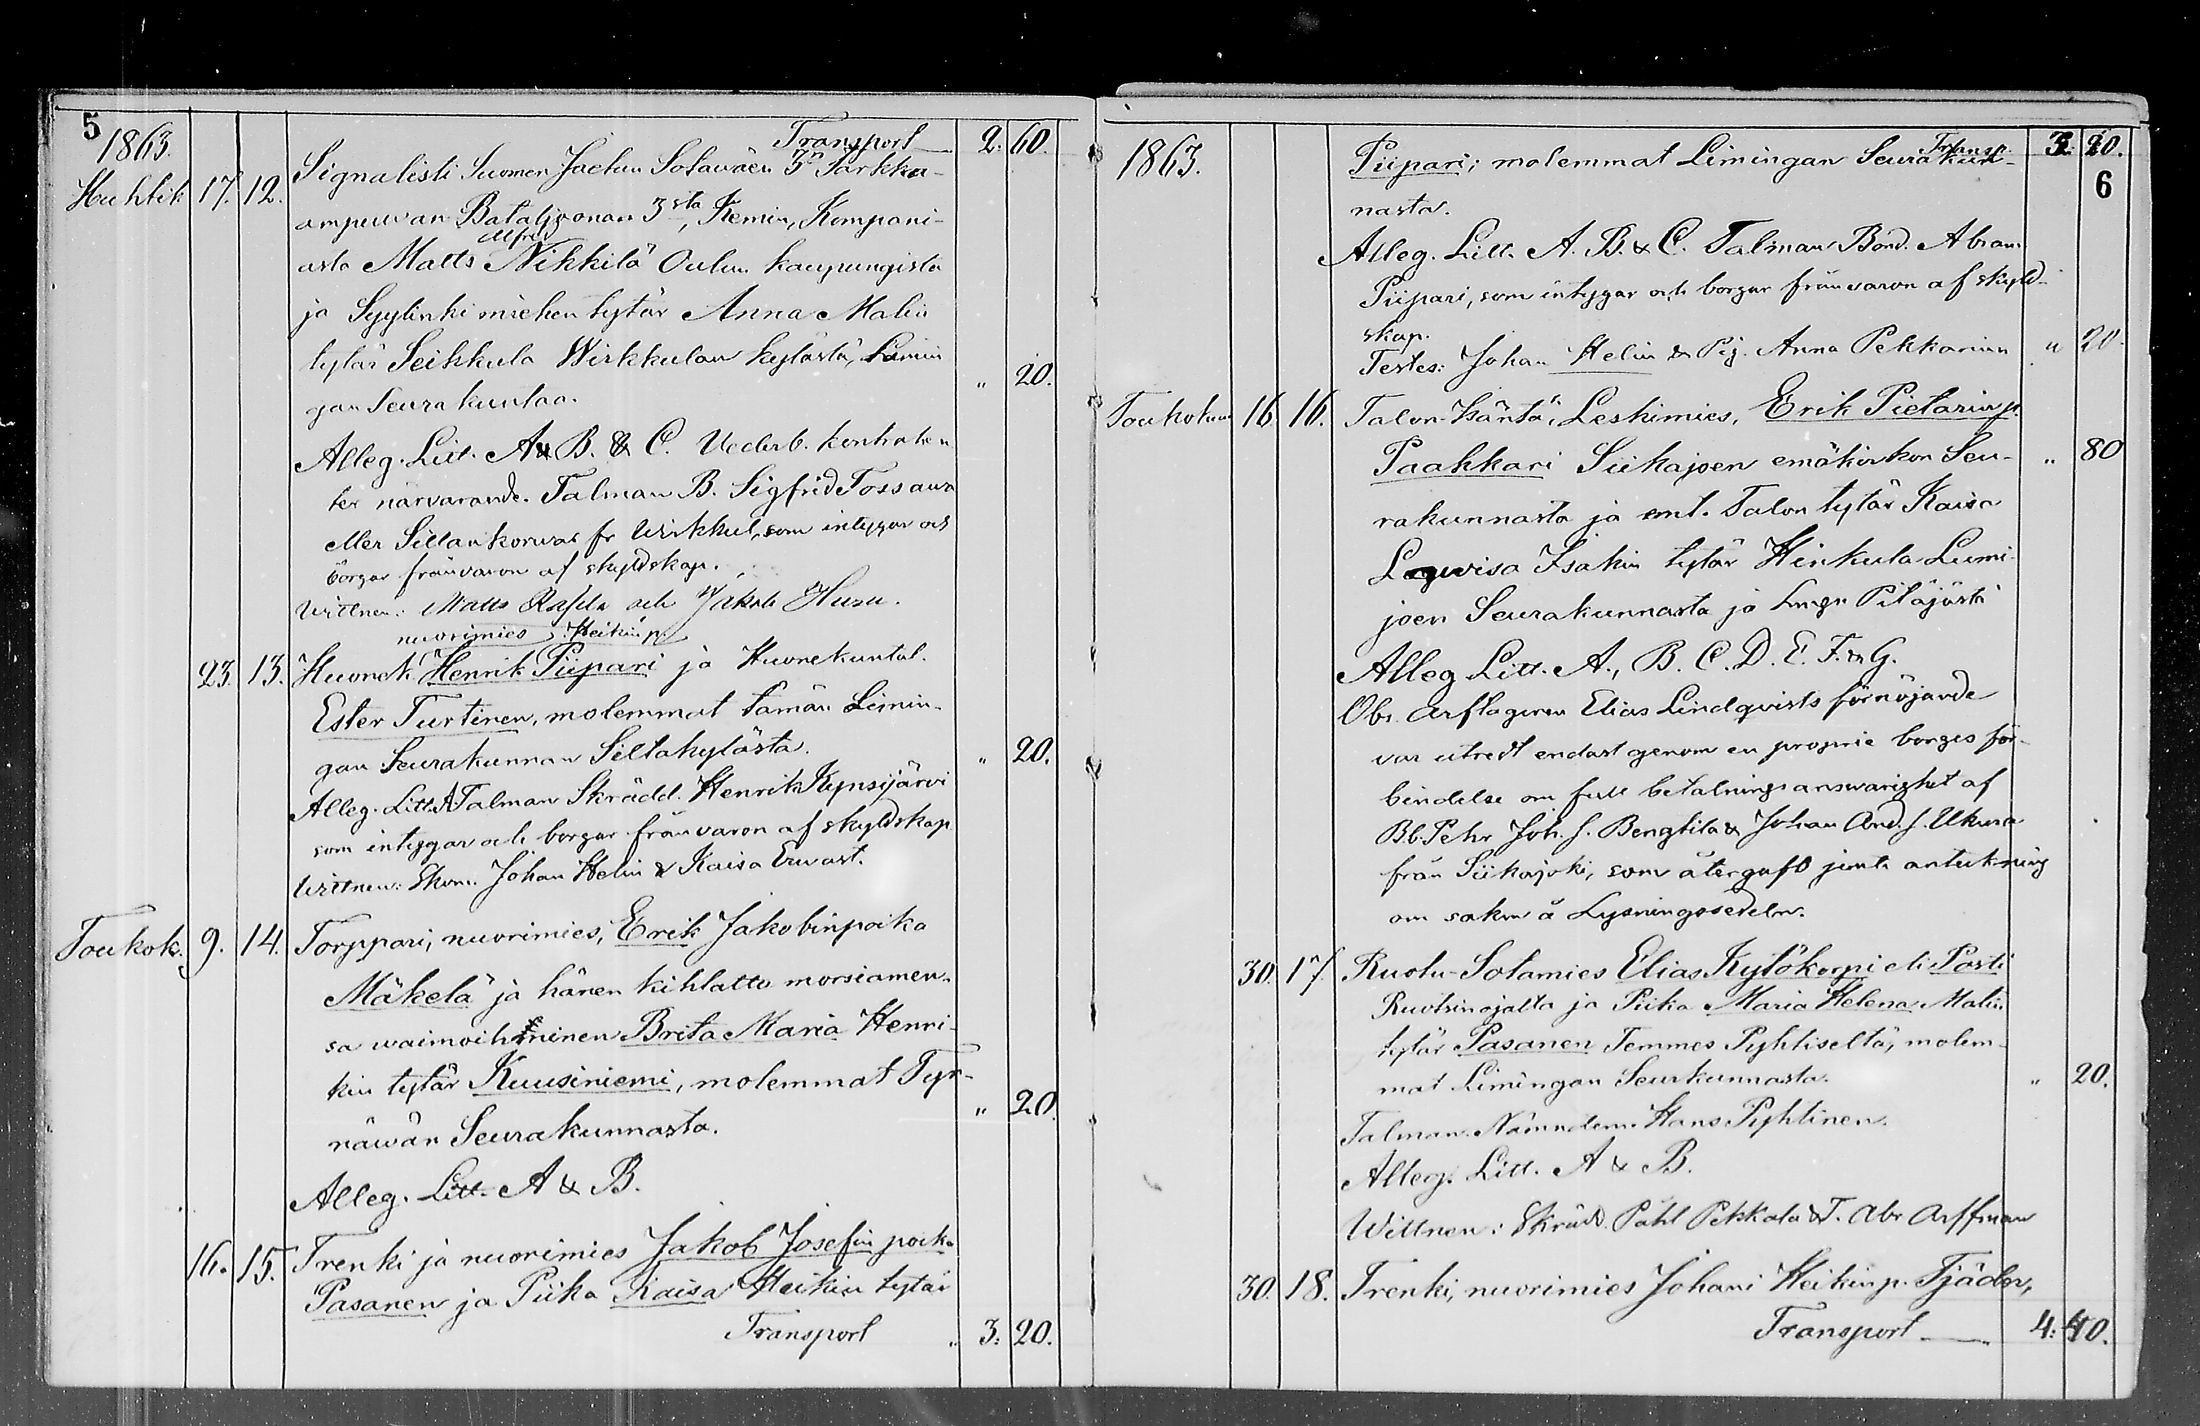 5
1863.
Transport 2. 60.
Huhtik 17. 12. Signalisti Suomen Jaetun Sotawäen 3n Tarkka-
ampuwan Bataljoonan 3sta, Kemin, Kompani-
Alfred
asta Matts Nikkilä Oulun kaupungista
ja Syylinki miehen tytär Anna Malin
tytär Seikkula Wirkkulan kylästä, Limin
gan Seurakuntaa. " 20.
Alleg. Litt. A & B. & C. Vederb. kontrahen
ter närvarande. Talman B. Sigfrid Tossawa
eller Sillankorwa fr Wirkkul, som intygar och
borgar frånvaron af skyldskap.
Wittnen: Matts och Jakob Husu.
nuorimies, Heikin p.
23. 13. Huonek. Henrik Piipari ja Huonekuntal.
Ester Turtinen, molemmat tämän Limin-
gan Seurakunnan Siltakylästä. " 20.
Alleg. Litt. A Talman Skrädd. Henrik Kynsijärvi
som intygar och borgar frånvaron af skyldskap
Wittnen: Skom. Johan Helin & Kaisa Erwast.
Toukok. 9. 14. Torppari, nuorimies, Erik Jakobinpoika
Mäkelä ja hänen kihlattu morsiamen-
sa waimoihminen Brita Maria Henri-
kin tytär Kuusiniemi, molemmat Tyr-
näwän Seurakunnasta. " 20.
Alleg. Litt. A & B.
16. 15. Trenki ja nuorimies Jakob Josefin poika
Pasanen ja Piika Kaisa Heikin tytär
Transport " 3: 20.
1863.
Transp. 3: 20.
6
Piipari; molemmat Limingan Seurakun-
nasta.
Alleg. Litt. A. B. & C. Talman Bond. Abram
Piipari, som intygar och borgar frånvaron af skyld-
skap.
Testes: Johan Helin & Pig. Anna Pekkarinen " 20.
Toukokuu 16. 16. Talon-Isäntä, Leskimies, Erik Pietarin p.
Paakkari Siikajoen emäkirkon Seu- " 80
rakunnasta ja ent. Talon tytär Kaisa
Lowisa Isakin tytär Hinkula Lumi-
joen Seurakunnasta ja Lmgn Pitäjästä
Alleg Litt. A., B. C. D. E. F. & G.
Obs. Arftagaren Elias Lindqvists förnöjande
var utredt endast genom en proprie borges för-
bindelse om full betalningsansvarighet af
Bb. Pehr Joh. s. Bengtila & Johan And. s. Ukura
från Siikajoki, som återgafs jemte anteckning
om saken å Lysningssedeln.
30. 17. Ruotu-Sotamies Elias Kylökorpi eli Posti
Ruotsinojalta ja Piika Maria Helena Matin
tytär Pasanen Temmes Pyhtiseltä, molem-
mat Limingan Seurkunnasta. " 20.
Talman. Nämndem. Hans Pyhtinen.
Alleg. Litt. A & B.
Wittnen: Skrädd. Påhl Pekkala & T. Abr Arffman
30. 18. Trenki, nuorimies Johani Heikin p. Tjäder,
Transport 4: 40.